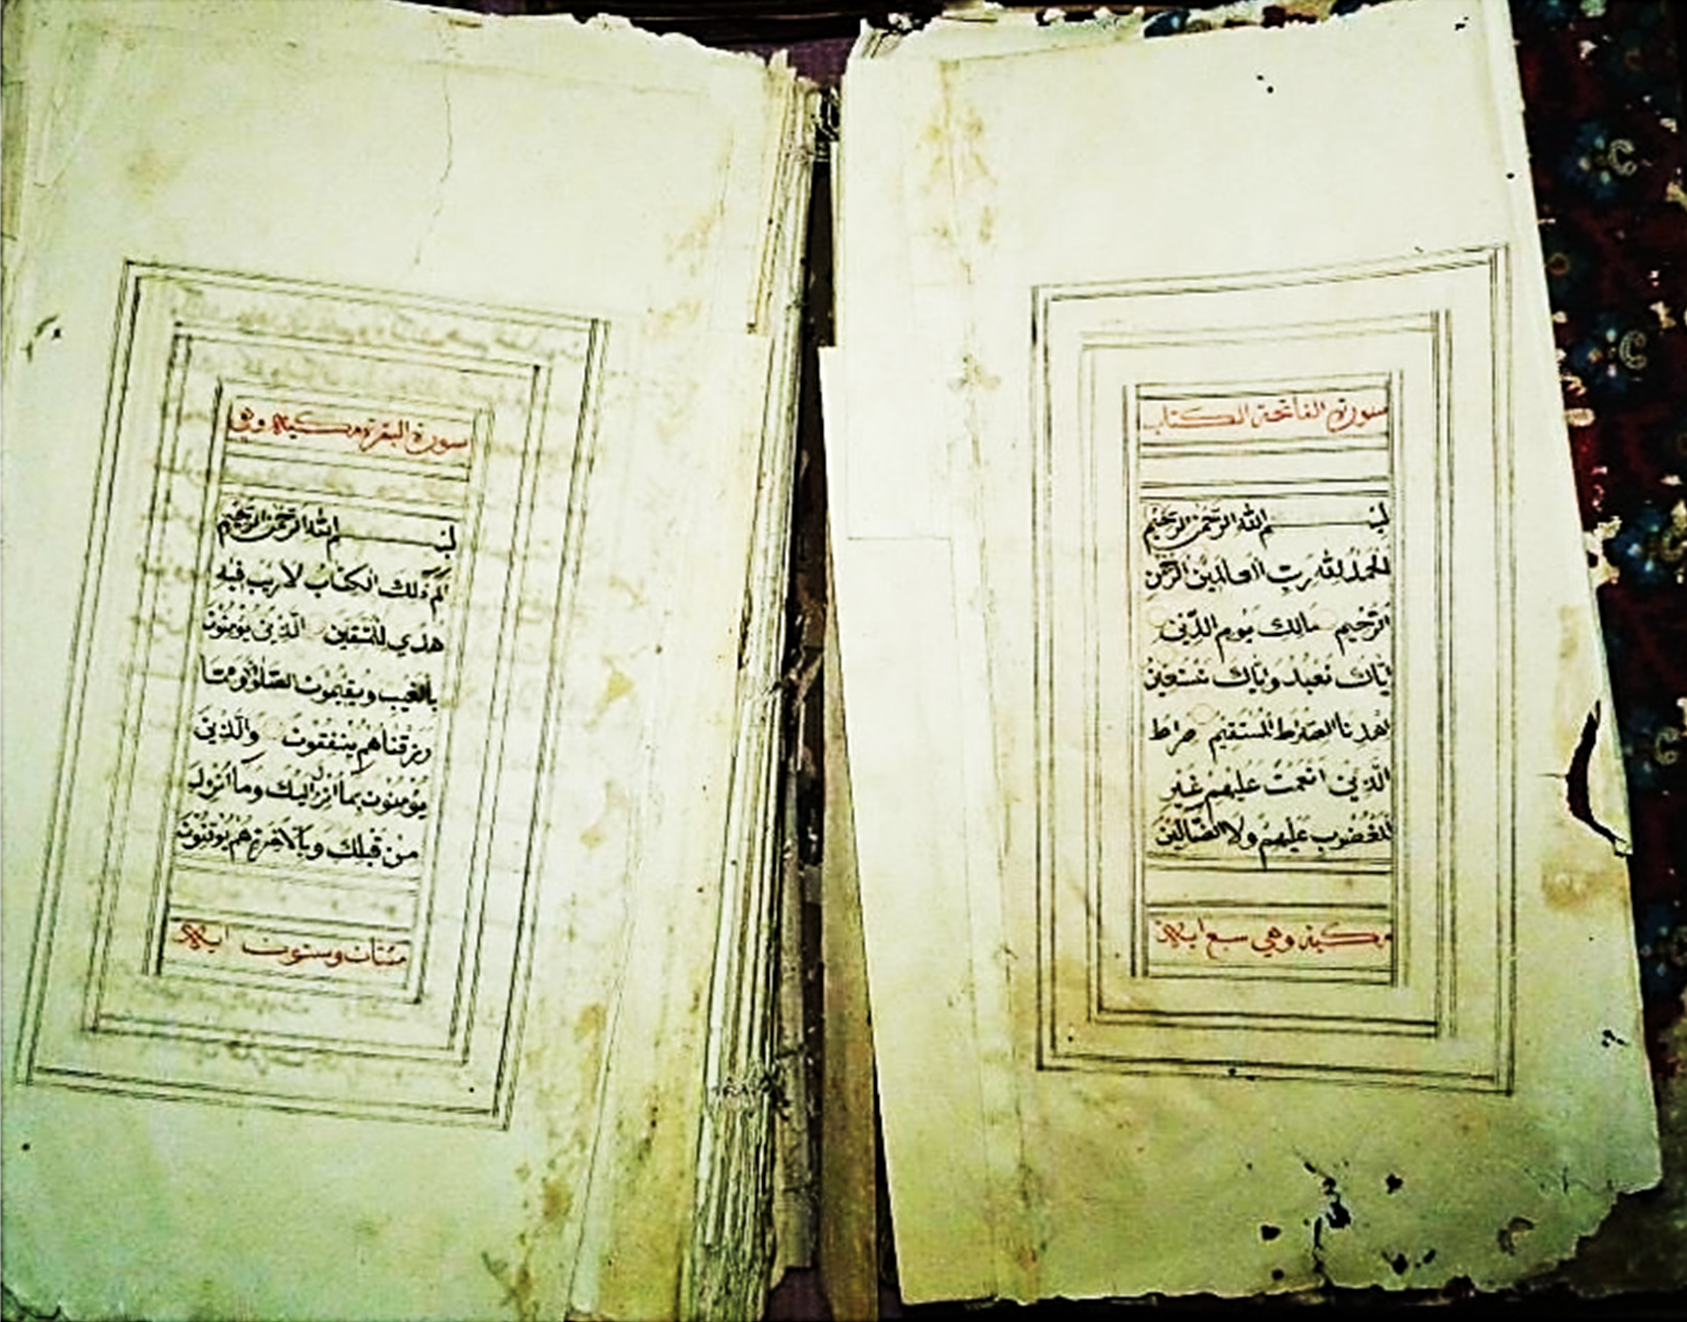 سورة الفاتحة الكتاب
بسم الله الرحمن الرحيم
الحمد لله رب العالمين الرحمن
الرحيم مالك يوم الدين
اياك نعبد واياك نستعين
اهدنا الصراط المستقيم صراط
الذين انعمت عليهم غير
المغضوب عليهم ولا الضالين
مكية وهي سبع ايات
سورة البقرة مكية وهي
بسم الله الرحمن الرحيم
الم ذلك الكتاب لا ريب فيه
هدي للمتقين الذين يؤمنون
بالغيب ويقيمون الصلوة ومما
رزقناهم ينفقون والذين
يؤمنون بما انزل اليك وما انزل
من قبلك وبالاخرة هم يوقنون
مئتان وستون ايات